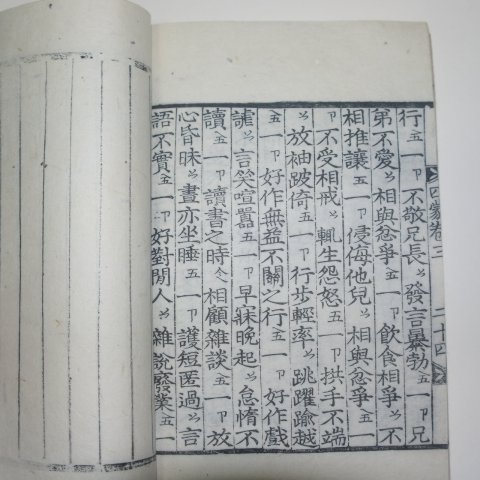 四蒙卷三 二十四
行五一卩不敬兄長ソ發言暴勃五一卩兄
弟不愛ソ相與忿爭五一卩飮食相爭ソ不
相推讓五一卩侵侮他兒ソ相與忿爭五一
卩不受相戒ソ輒生怨怒五一卩拱手不端
ソ放袖跛倚五一卩行步輕率ソ跳躍踰越
五一卩好作無益不關之行五一卩好作戲
謔ソ言笑喧囂五一卩早寐晩起ソ怠惰不
讀五一卩讀書之時人相顧雜談五一卩放
心昏昧ソ晝亦坐睡五一卩護短匿過ソ言
語不實五一卩好對閒人ソ雜說廢業五一